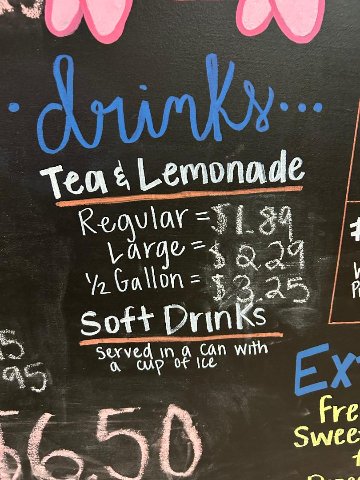 drinks...
Tea & Lemonade
Regular = $1.89
Large = $2.29
1/2 Gallon = $3.25
Soft Drinks
Served in a can with
a cup of ice
5
95
$650
Ex
Fre
Sweet